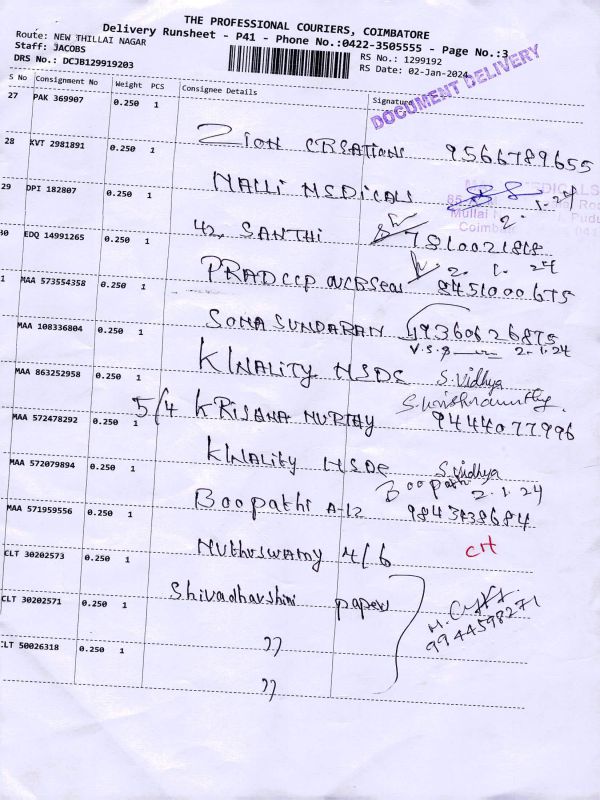 THE PROFESSIONAL COURIERS, COIMBATORE
Delivery Runsheet - P41 - Phone No.:0422-3505555 - Page No.:3
Route: NEW THILLAI NAGAR
Staff: JACOBS
DRS No.: DCJB129919203
RS No.: 1299192
RS Date: 02-Jan-2024
DOCUMENT DELIVERY
S No Consignment No Weight PCS Consignee Details Signature
27 PAK 369907 0.250 1
Zion CREATIONS 9566789655
28 KVT 2981891 0.250 1
NALLI MEDICALS
29 DPI 182807 0.250 1
2.1.24
42, SANTHI 7810021818
30 EDQ 14991265 0.250 1
PRADEEP OVERSEAS 2. 1. 24
8451000675
MAA 573554358 0.250 1
SOMASUNDARAN 9360626875
MAA 108336804 0.250 1
2.1.24
KINALITY MSDE S.Vidhya
MAA 863252958 0.250 1
5/4 KRISHNA MURTHY S.Krishnamurthy
9444077996
MAA 572478292 0.250 1
KINALITY MSDE S.Vidhya
MAA 572079894 0.250 1
Boopathi A-12 Boopathi 2.1.24
MAA 571959556 0.250 1
Muthuswamy 4/6 CH
CLT 30202573 0.250 1
Shivadharshini papers
CLT 30202571 0.250 1
9944598271
〃
CLT 50026318 0.250 1
〃